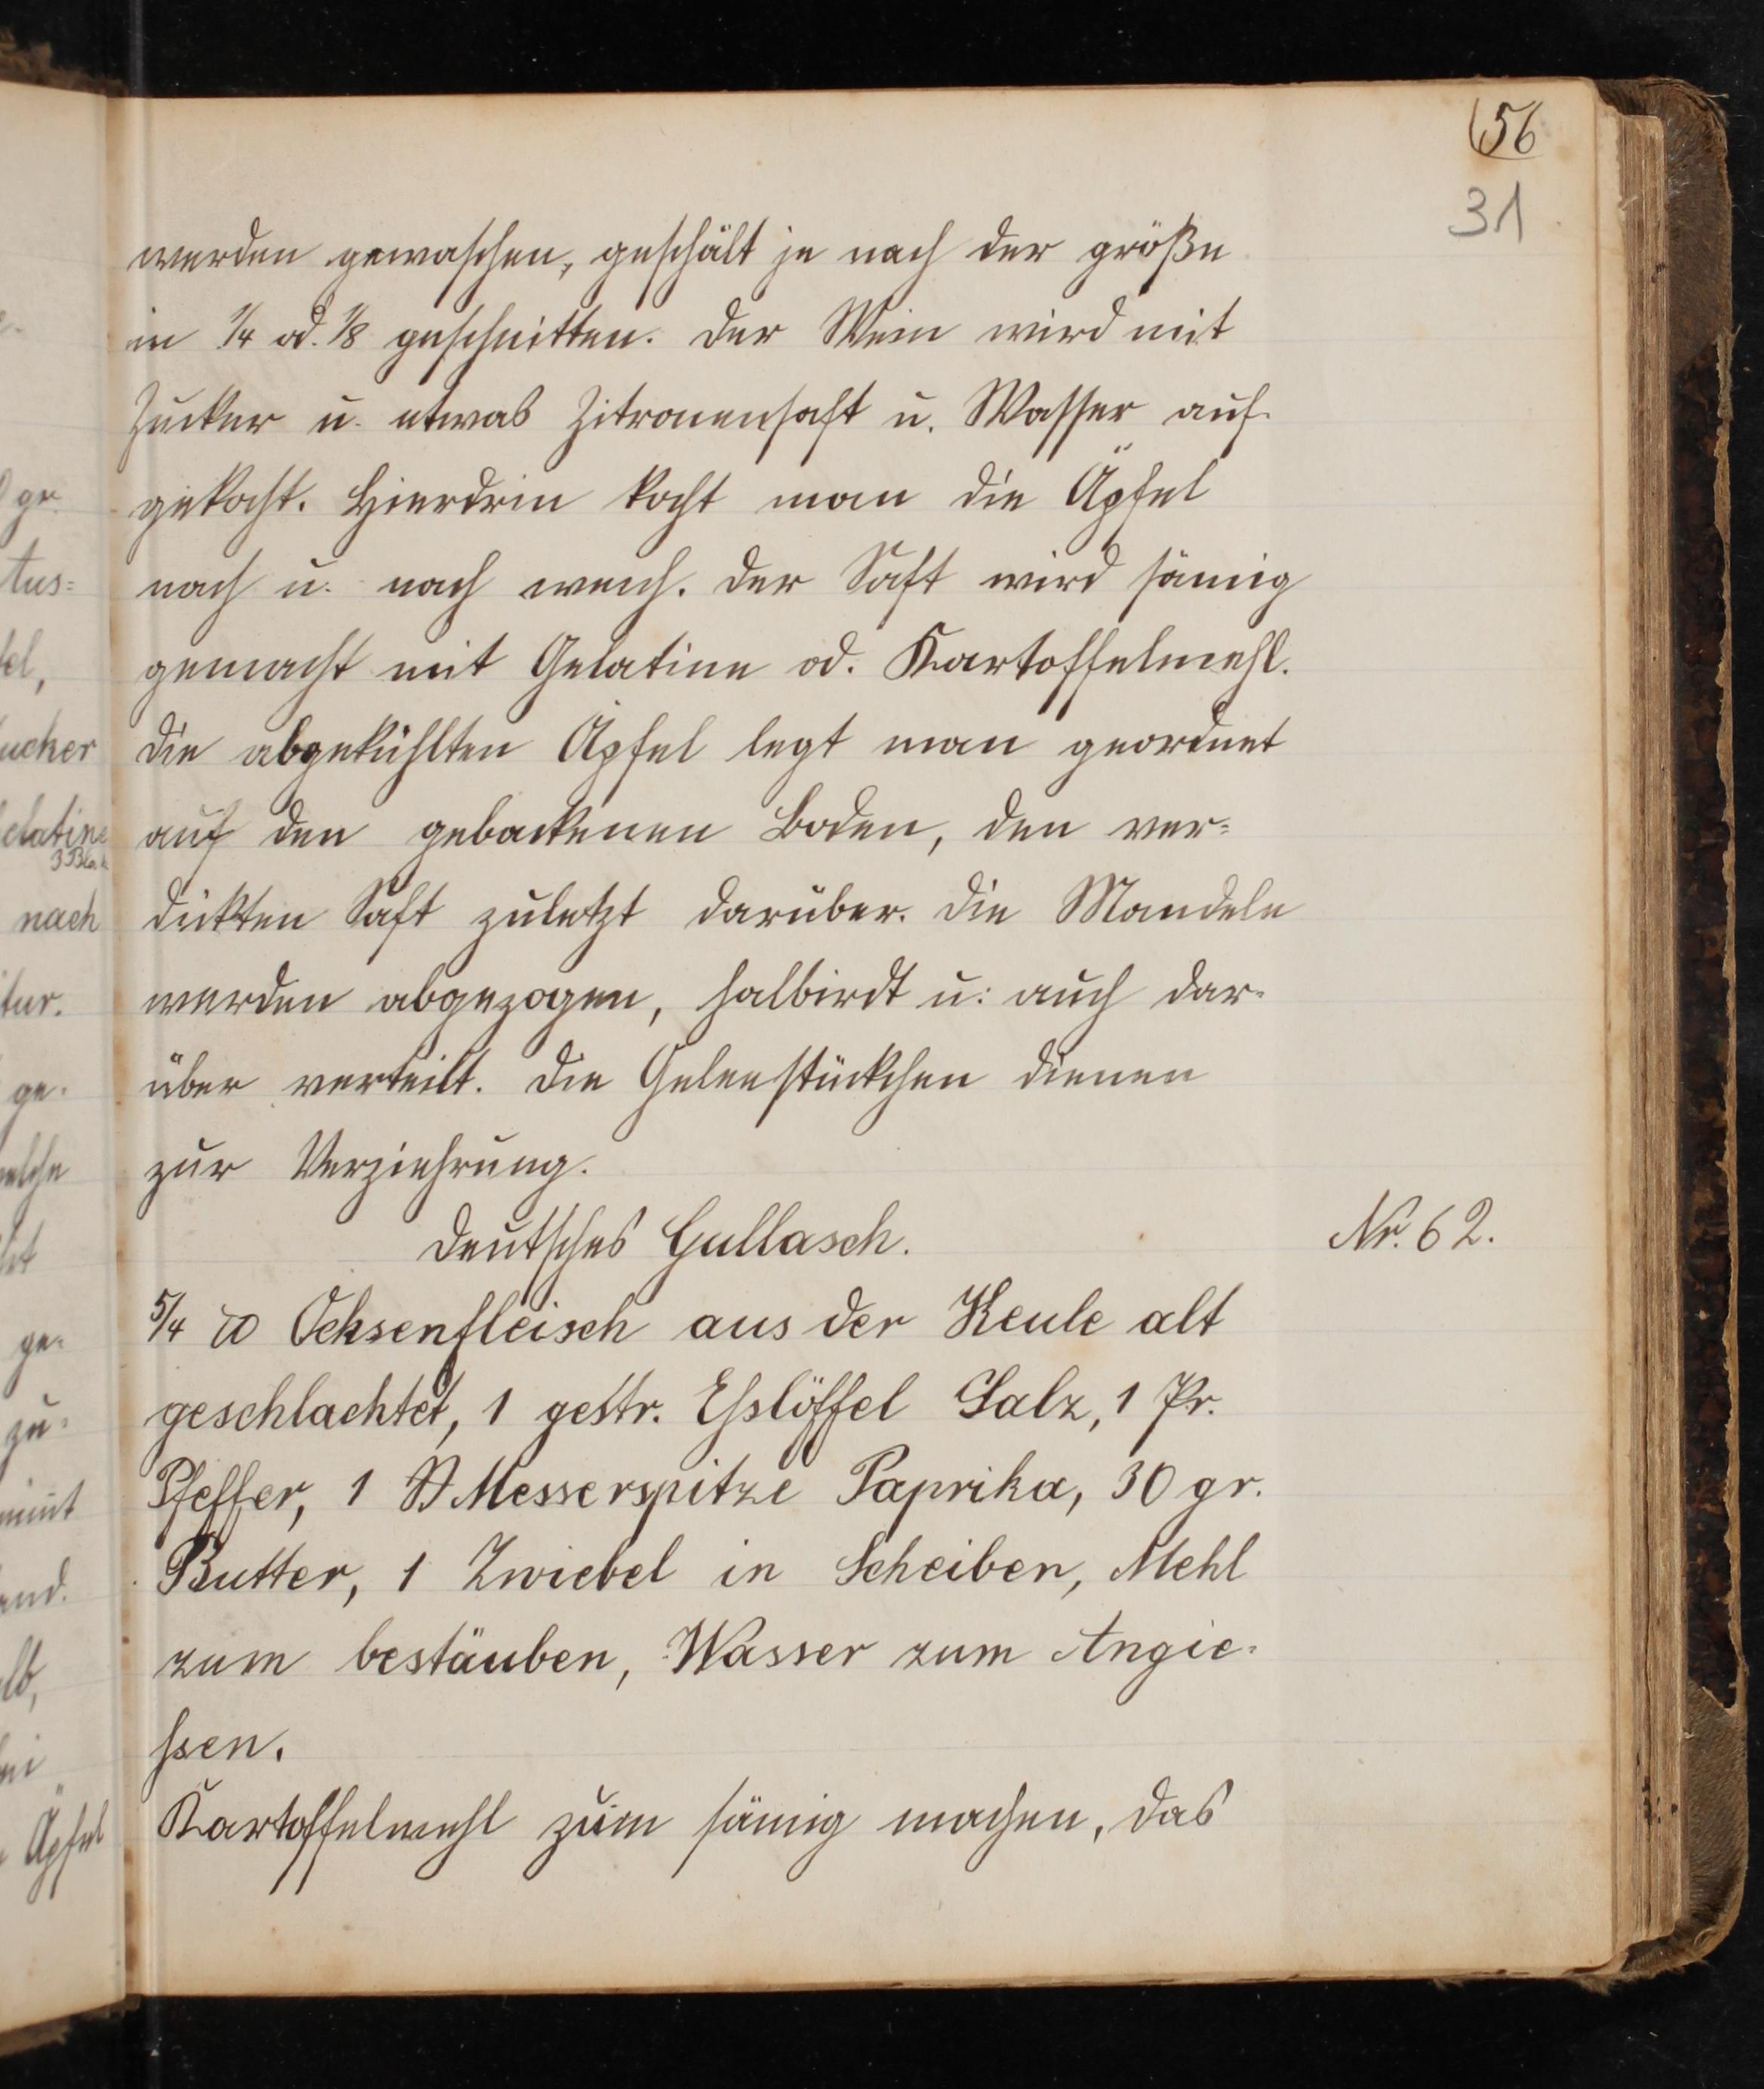 56
31
werden gewaschen, geschält je nach der größe
in 1/4 od. 1/8 geschnitten. Der Wein wird mit
Zucker u. etwas Zitronensaft u. Wasser auf-
gekocht. Hierdrin kocht man die Äpfel
nach u. nach weich. Der Saft wird sämig
gemacht mit Gelatine od. Kartoffelmehl.
Die abgekühlten Äpfel legt man geordnet
auf den gebackenen Boden, den ver=
dickten Saft zuletzt darüber. Die Mandeln
werden abgezogen, halbirdt u. auch dar-
über verteilt. Die Geleestückchen dienen
zur Verziehrung.
Deutsches Gullasch.
Nr. 62.
5/4 ℔ Ochsenfleisch aus der Keule alt
geschlachtet, 1 gestr. Esslöffel Salz, 1 Pr.
Pfeffer, 1 Messerspitze Paprika, 30 gr.
Butter, 1 Zwiebel in Scheiben, Mehl
zum bestäuben, Wasser zum Angie-
ssen.
Kartoffelmehl zum sämig machen, das